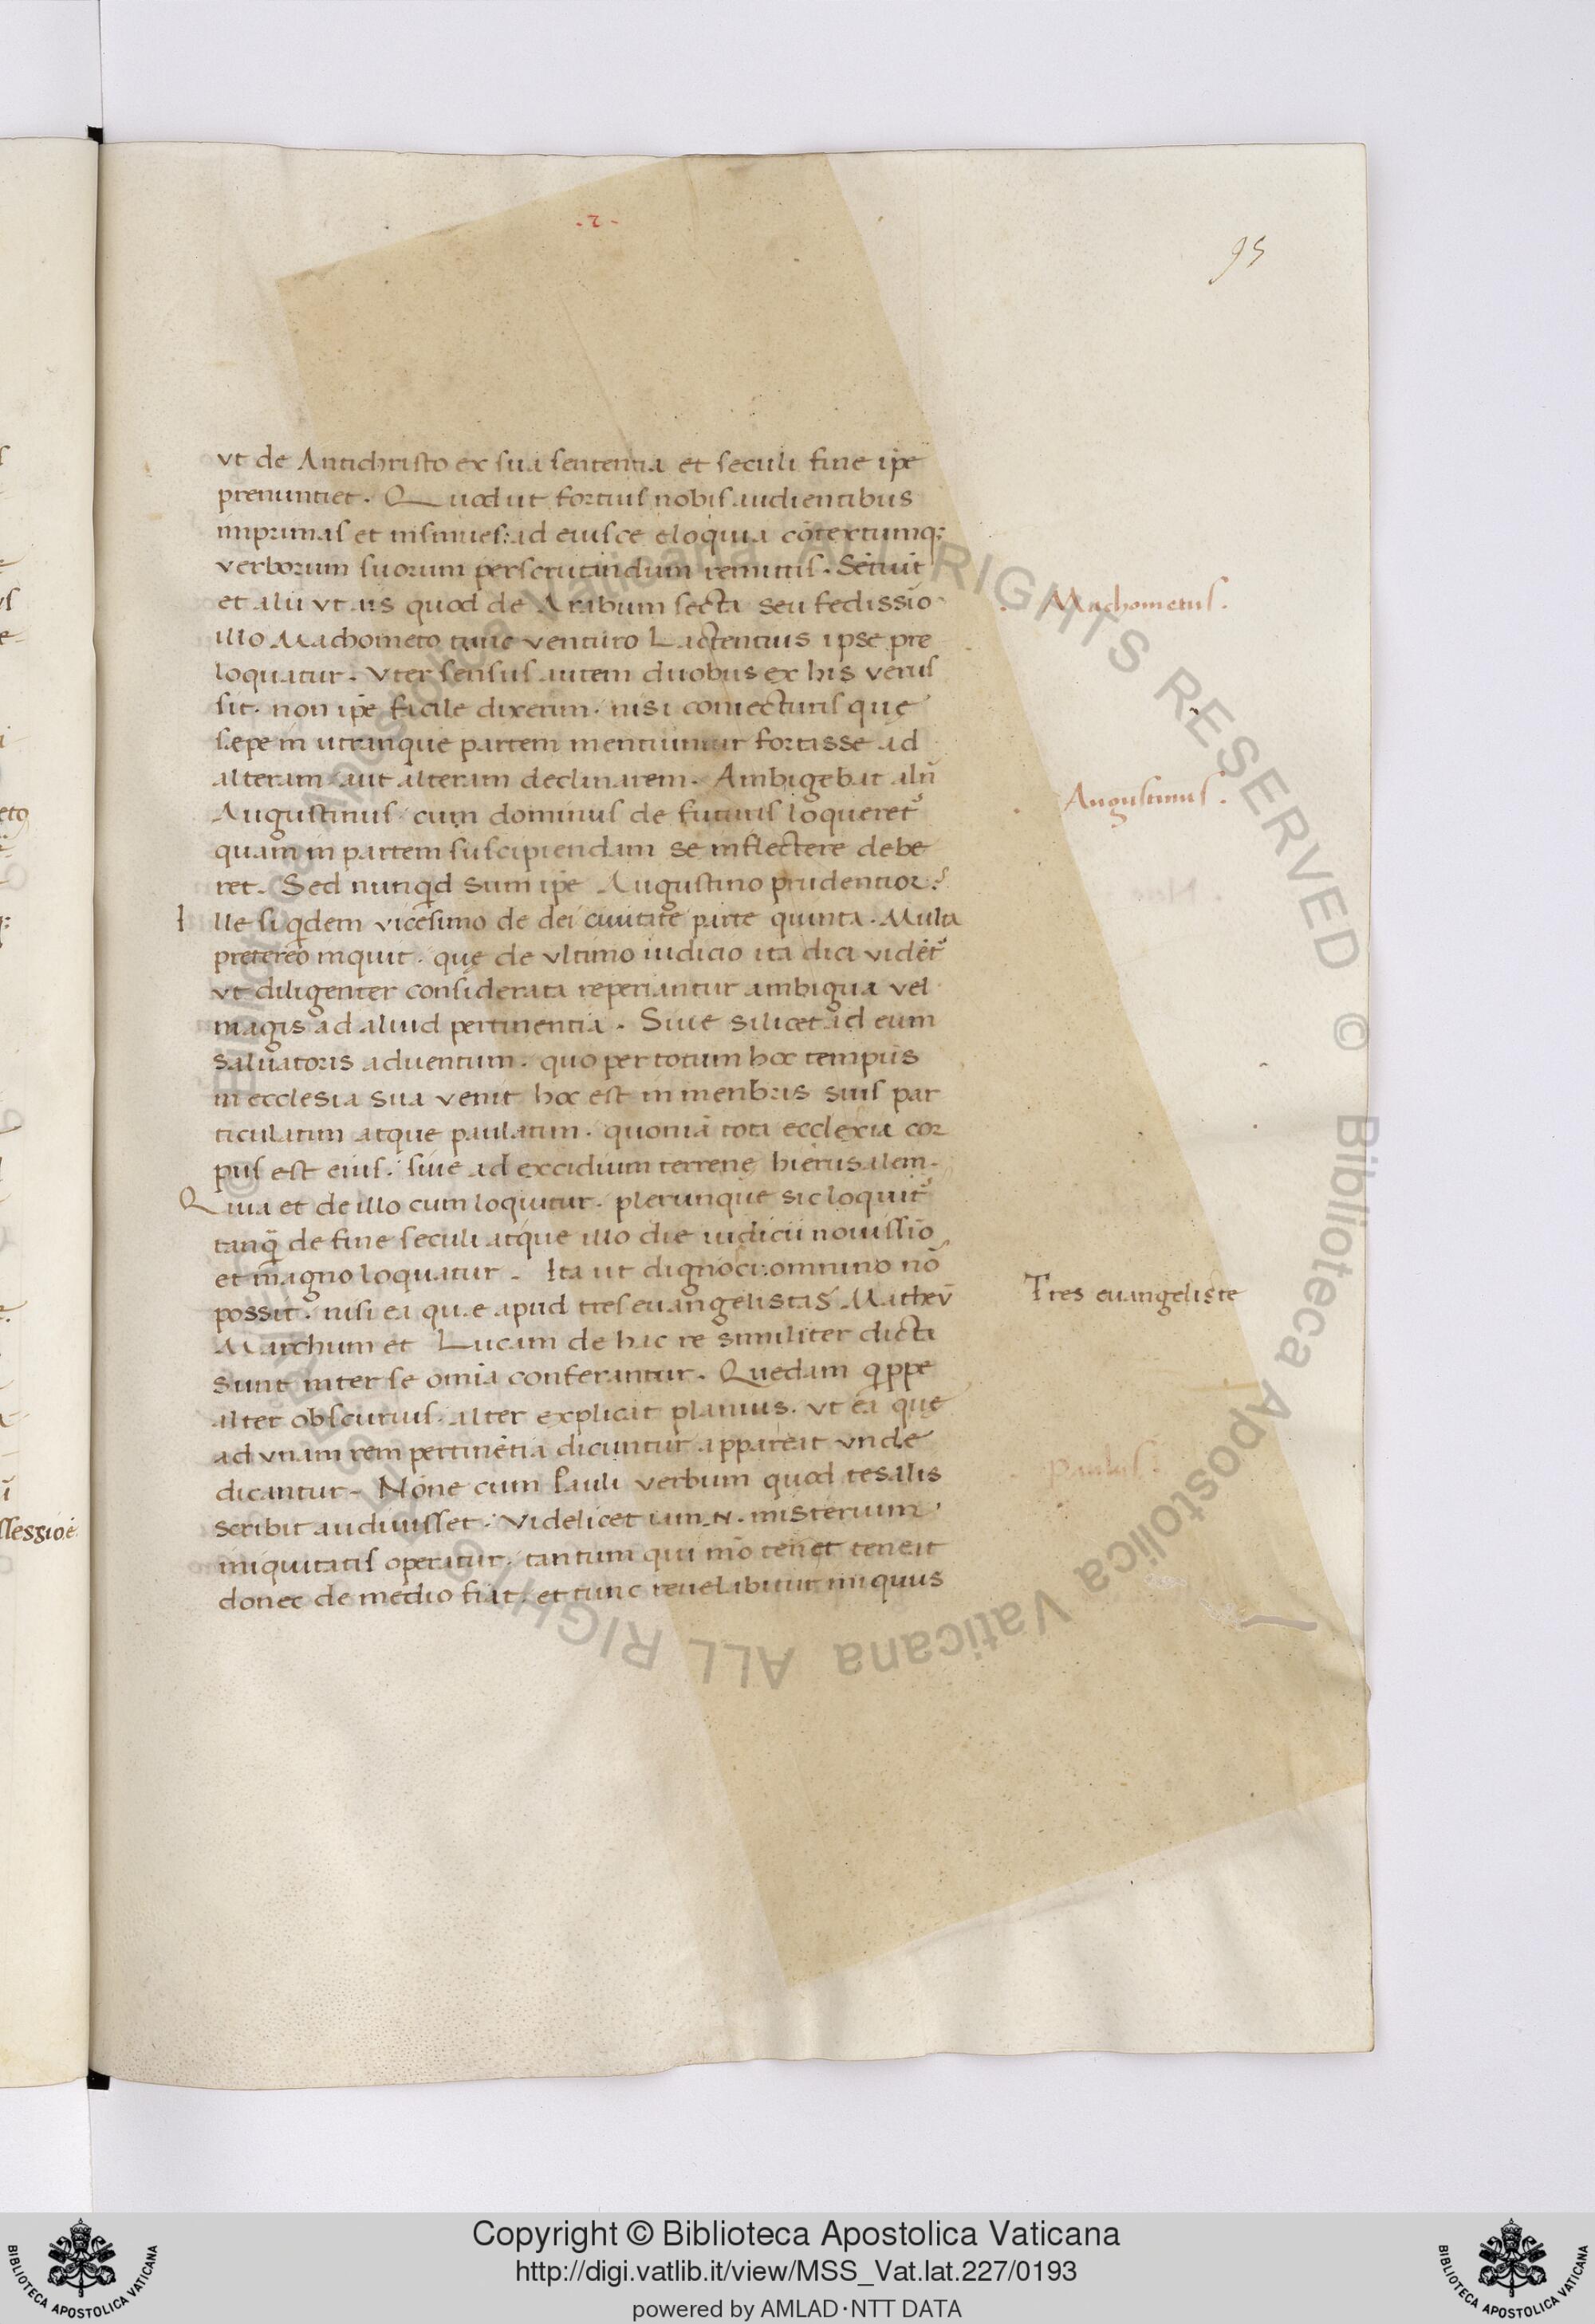 ·2·
95
vt de Antichristo ex sua sententia et seculi fine ip̄e
prenuntiet. Quod ut fortius nobis audientibus
imprimas et insinues: ad eiusce eloquia cōtextumq;
verborum suorum perscrutandum remittis. Sētiūt
et alii vt iis quod de Arabum secta seu fedissio
illo Machometo tunc venturo Lactentius ipse pre
loquatur. Vter sensus autem duobus ex his verus
sit. non ip̄e facile dixerim. nisi coniecturis quę
sepe in utranque partem mentiuntur fortasse ad
alteram aut alteram declinarem. Ambigebat
Augustinus cum dominus de futuris loqueret᷑
quam in partem suscipiendam se inflectere debe
ret. Sed nunqͥd sum ip̄e Augustino prudentior?
Ille siqͥdem vicesimo de dei ciuitate parte quinta. Multa
pretereo inquit. quę de vltimo iudicio ita dici vidēt᷑
vt diligenter considerata reperiantur ambigua vel
magis ad aliud pertinentia. Siue silicet ad eum
saluatoris aduentum. quo per totum hoc tempus
in ecclesia sua venit hoc est in menbris suis par
ticulatim atque paulatim. quoniā tota ecclexia cor
pus est eius. siue ad excidium terrenę hierusalem.
Quia et de illo cum loquitur. plerunque sic loquit᷑
tanq̄ de fine seculi atque illo die iudicii nouissīo
et magno loquatur. Ita ut dignosci omnino nō
possit. nisi ea quae apud tres euangelistas Matheū
Marchum et Lucam de hac re similiter dicta
sunt inter se omīa conferantur. Quedam qͥppe
alter obscurius. alter explicat planius. vt ea quę
ad vnam rem pertinētia dicuntur appareat vnde
dicantur. Nōne cum Pauli verbum quod tesalis
scribit audiuisset. Videlicet iam .N. misterium
iniquitatis operatur. tantum qui mō tenet teneat
donec de medio fiat. et tunc reuelabitur iniquus
Machometus.
Augustinus.
Tres euangeliste
Paulus.
eto
ssessioē
Biblioteca Apostolica Vaticana ALL RIGHTS RESERVED ©
Copyright © Biblioteca Apostolica Vaticana
http://digi.vatlib.it/view/MSS_Vat.lat.227/0193
powered by AMLAD·NTT DATA
BIBLIOTECA APOSTOLICA VATICANA
BIBLIOTECA APOSTOLICA VATICANA